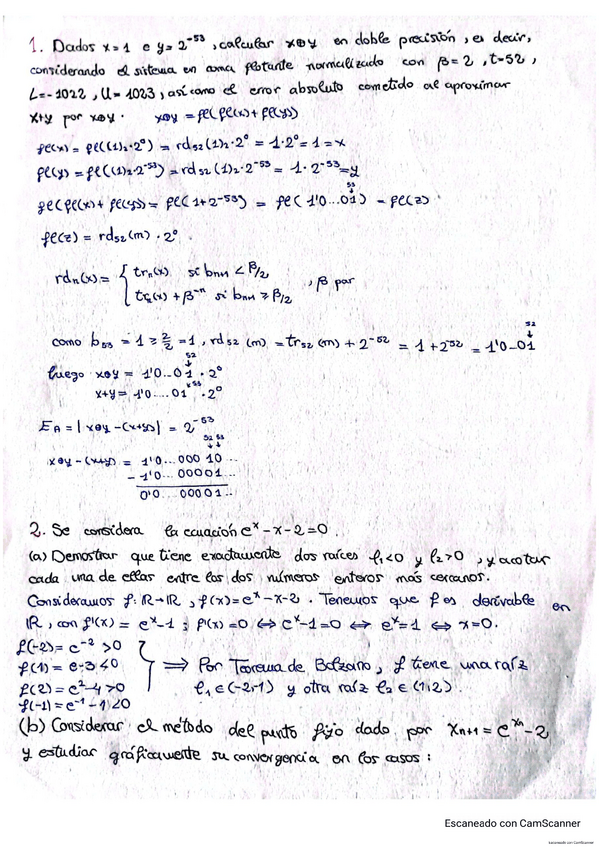 1. Dados x=1 e y=2^-53, calcular x⊕y en doble precisión, es decir,
considerando el sistema en coma flotante normalizado con β=2, t=52,
L=-1022, U=1023, así como el error absoluto cometido al aproximar
x+y por x⊕y. x⊕y = fl(fl(x)+fl(y))
fl(x) = fl((1)₂·2⁰) = rd₅₂(1)₂·2⁰ = 1·2⁰ = 1 = x
fl(y) = fl((1)₂·2^-53) = rd₅₂(1)₂·2^-53 = 1·2^-53 = y
53
fl(fl(x)+fl(y)) = fl(1+2^-53) = fl(1'0...01) = fl(z)
↓
fl(z) = rd₅₂(m)·2⁰
rdₙ(x) = { trₙ(x) si bₙ₊₁ < β/2
trₙ(x) + β^-n si bₙ₊₁ ≥ β/2
, β par
52
↓
como b₅₃ = 1 ≥ 2/2 = 1, rd₅₂(m) = tr₅₂(m) + 2^-52 = 1 + 2^-52 = 1'0-01
52
↓
luego x⊕y = 1'0...01·2⁰
53
x+y = 1'0....01·2⁰
E_A = |x⊕y - (x+y)| = 2^-53
52 53
↓ ↓
x⊕y - (x+y) = 1'0...000 10..
-1'0...00001..
0'0...00001..
2. Se considera la ecuación e^x - x - 2 = 0.
(a) Demostrar que tiene exactamente dos raíces l₁<0 y l₂>0, y acotar
cada una de ellas entre los dos números enteros más cercanos.
Consideramos f: ℝ→ℝ, f(x) = e^x - x - 2. Tenemos que f es derivable en
ℝ, con f'(x) = e^x - 1; f'(x) = 0 ⇔ e^x - 1 = 0 ⇔ e^x = 1 ⇔ x = 0.
f(-2) = e^-2 > 0
f(1) = e-3 < 0
f(2) = e²-4 > 0
f(-1) = e^-1 - 1 < 0
} ⟹ Por Teorema de Bolzano, f tiene una raíz
l₁ ∈ (-2,-1) y otra raíz l₂ ∈ (1,2).
(b) Considerar el método del punto fijo dado por xₙ₊₁ = e^xₙ - 2
y estudiar gráficamente su convergencia en los casos:
Escaneado con CamScanner
Escaneado con CamScanner